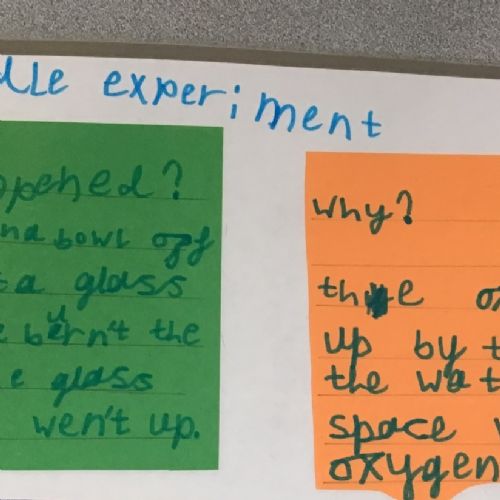 dle experiment
ppened?
and bowl off
ta glass
e bu​rn't the
e glass
wen't up.
why?
the ox
up by t
the wat
space w
oxygen